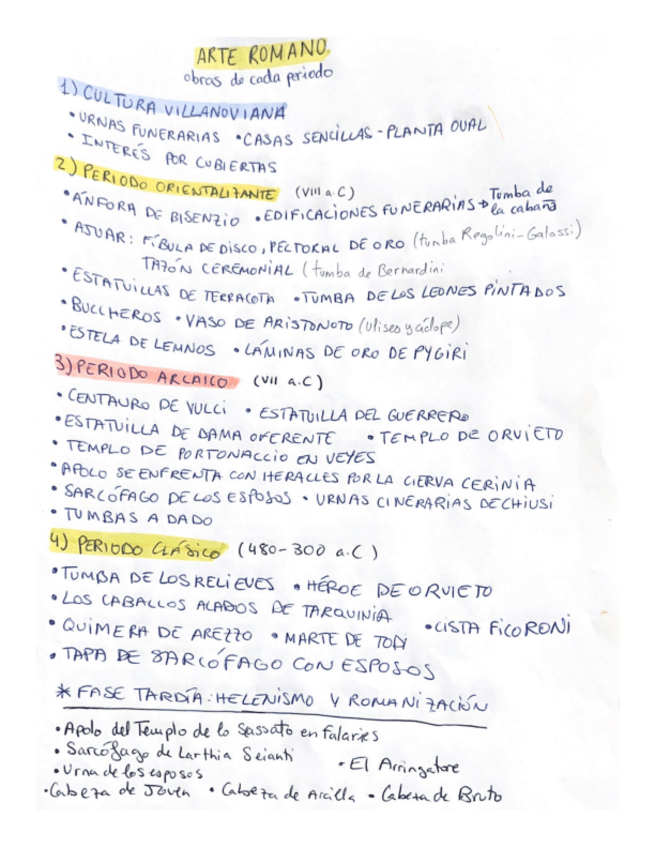 ARTE ROMANO
obras de cada periodo
1) CULTURA VILLANOVIANA
• URNAS FUNERARIAS • CASAS SENCILLAS - PLANTA OVAL
• INTERÉS POR CUBIERTAS
2) PERIODO ORIENTALIZANTE (VIII a.C)
• ÁNFORA DE BISENZIO • EDIFICACIONES FUNERARIAS → Tumba de la cabaña
• AJUAR: FÍBULA DE DISCO, PECTORAL DE ORO (tumba Regolini-Galassi)
TAZÓN CEREMONIAL (tumba de Bernardini
• ESTATUILLAS DE TERRACOTA • TUMBA DE LOS LEONES PINTADOS
• BUCCHEROS • VASO DE ARISTONOTO (Ulises y cíclope)
• ESTELA DE LEMNOS • LÁMINAS DE ORO DE PYGIRI
3) PERIODO ARCAICO (VII a.C)
• CENTAURO DE VULCI • ESTATUILLA DEL GUERRERO
• ESTATUILLA DE DAMA OFERENTE • TEMPLO DE ORVIETO
• TEMPLO DE PORTONACCIO EN VEYES
• APOLO SE ENFRENTA CON HERACLES POR LA CIERVA CERINIA
• SARCÓFAGO DE LOS ESPOSOS • URNAS CINERARIAS DE CHIUSI
• TUMBAS A DADO
4) PERIODO CLÁSICO (480-300 a.C)
• TUMBA DE LOS RELIEVES • HÉROE DE ORVIETO
• LOS CABALLOS ALADOS DE TARQUINIA
• QUIMERA DE AREZZO • MARTE DE TODI • CISTA FICORONI
• TAPA DE SARCÓFAGO CON ESPOSOS
* FASE TARDÍA: HELENISMO Y ROMANIZACIÓN
• Apolo del Templo de lo Sassato en Falaries
• Sarcófago de Larthia Seianti • El Arringatore
• Urna de los esposos
• Cabeza de Joven • Cabeza de Arcilla • Cabeza de Bruto